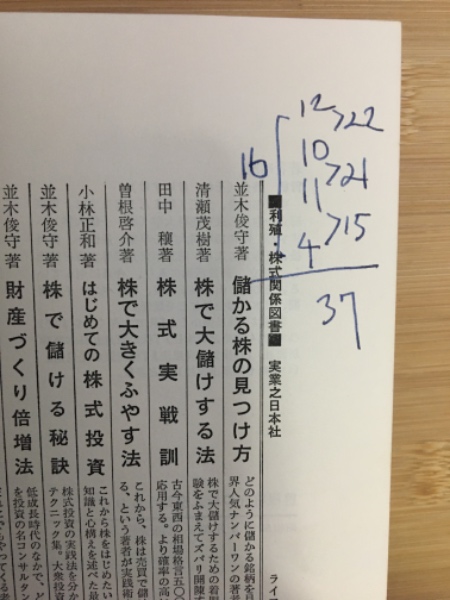 12
>22
10
>21
11
>15
4
16
37
■利殖・株式関係図書■ 実業之日本社
並木俊守著 儲かる株の見つけ方
どのように儲かる銘柄を見
界人気ナンバーワンの著者
清瀬茂樹著 株で大儲けする法
株で大儲けするための着眼
験をふまえてズバリ開陳す
田中 穰著 株式実戦訓
古今東西の相場格言五〇〇
応用する。より確率の高
曽根啓介著 株で大きくふやす法
これから、株は売買で儲
る、という著者が実践術
小林正和著 はじめての株式投資
これから株をはじめたい
知識と心構えを述べた最
並木俊守著 株で儲ける秘訣
株式投資の実践法を分か
テクニック集。大衆投資
並木俊守著 財産づくり倍増法
低成長時代のなかで、ど
を投資の名コンサルタン
ライフ